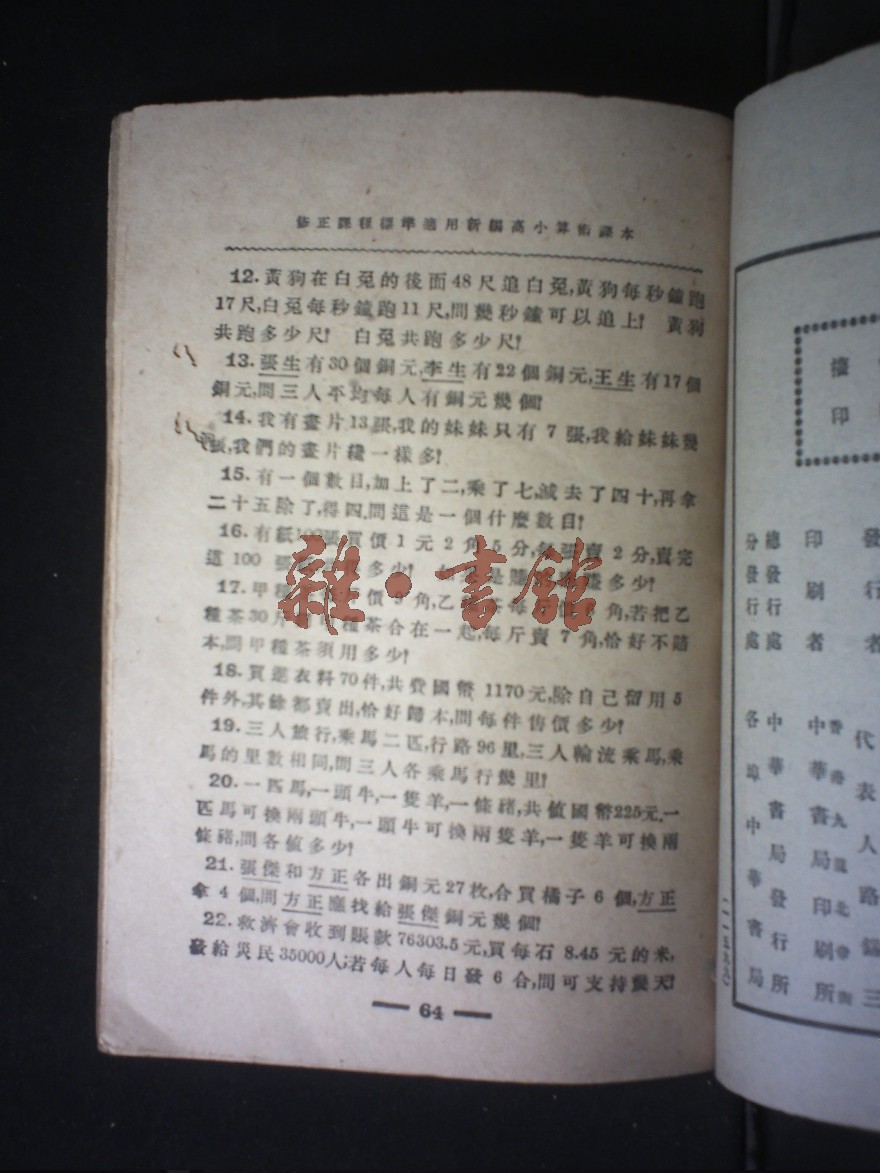 修正課程標準適用新編高小算術課本
12.黃狗在白兔的後面48尺追白兔,黃狗每秒鐘跑
17尺,白兔每秒鐘跑11尺,問幾秒鐘可以追上? 黃狗
共跑多少尺? 白兔共跑多少尺?
13.張生有30個銅元,李生有22個銅元,王生有17個
銅元,問三人平均每人有銅元幾個?
14.我有畫片13張,我的妹妹只有7張,我給妹妹幾
張,我們的畫片纔一樣多?
15.有一個數目,加上了二,乘了七,減去了四十,再拿
二十五除了,得四,問這是一個什麼數目?
16.有紙100張,買價1元2角5分,每張賣2分,賣完
這100張 多少? 多少?
17.甲種 價9角,乙 角,若把乙
種茶30斤 種茶合在一起,每斤賣7角,恰好不賠
本,問甲種茶須用多少?
18.買進衣料70件,共費國幣1170元,除自己留用5
件外,其餘都賣出,恰好歸本,問每件售價多少?
19.三人旅行,乘馬二匹,行路96里,三人輪流乘馬,乘
馬的里數相同,問三人各乘馬行幾里?
20.一匹馬,一頭牛,一隻羊,一條豬,共值國幣225元,一
匹馬可換兩頭牛,一頭牛可換兩隻羊,一隻羊可換兩
條豬,問各值多少?
21.張傑和方正各出銅元27枚,合買橘子6個,方正
拿4個,問方正應找給張傑銅元幾個?
22.救濟會收到賬款76303.5元,買每石8.45元的米,
發給災民35000人,若每人每日發6合,問可支持幾天?
64
雜·書館
印
發行者
代表人路錫三
印刷者
中華書局印刷所
總發行處
中華書局發行所
分發行處
各埠中華書局
(一一五九九)